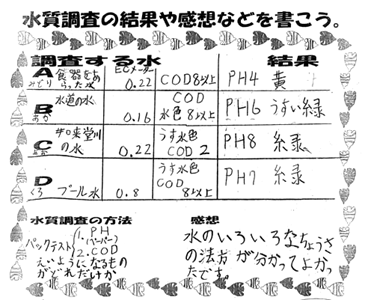 水質調査の結果や感想などを書こう。
調査する水 結果
A 食器をあらった水 みどり ECメーター 0.22 COD8以上 PH4 黄
B 水道の水 あか 0.16 COD 水色 8以上 PH6 うすい緑
C の水 0.22 うす水色 COD 2 PH8 緑
D くろ プール水 0.8 うす水色 COD 8以上 PH7 緑
水質調査の方法 感想
パックテスト 1. PH (ペーパー)
2. COD
えいようになるもの
がどれだけか
水のいろいろなちょうさ
の法方が分かってよかっ
たです。